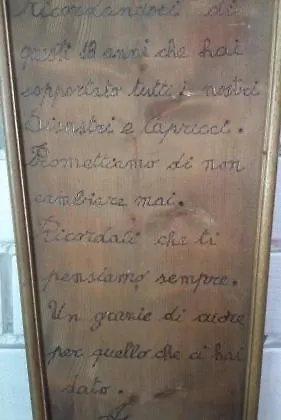 Ricordandoci di
questi 18 anni che hai
sopportato tutti i nostri
Disastri e Capricci.
Promettiamo di non
cambiare mai.
Ricordati che ti
pensiamo sempre.
Un grazie di cuore
per quello che ci hai
dato.